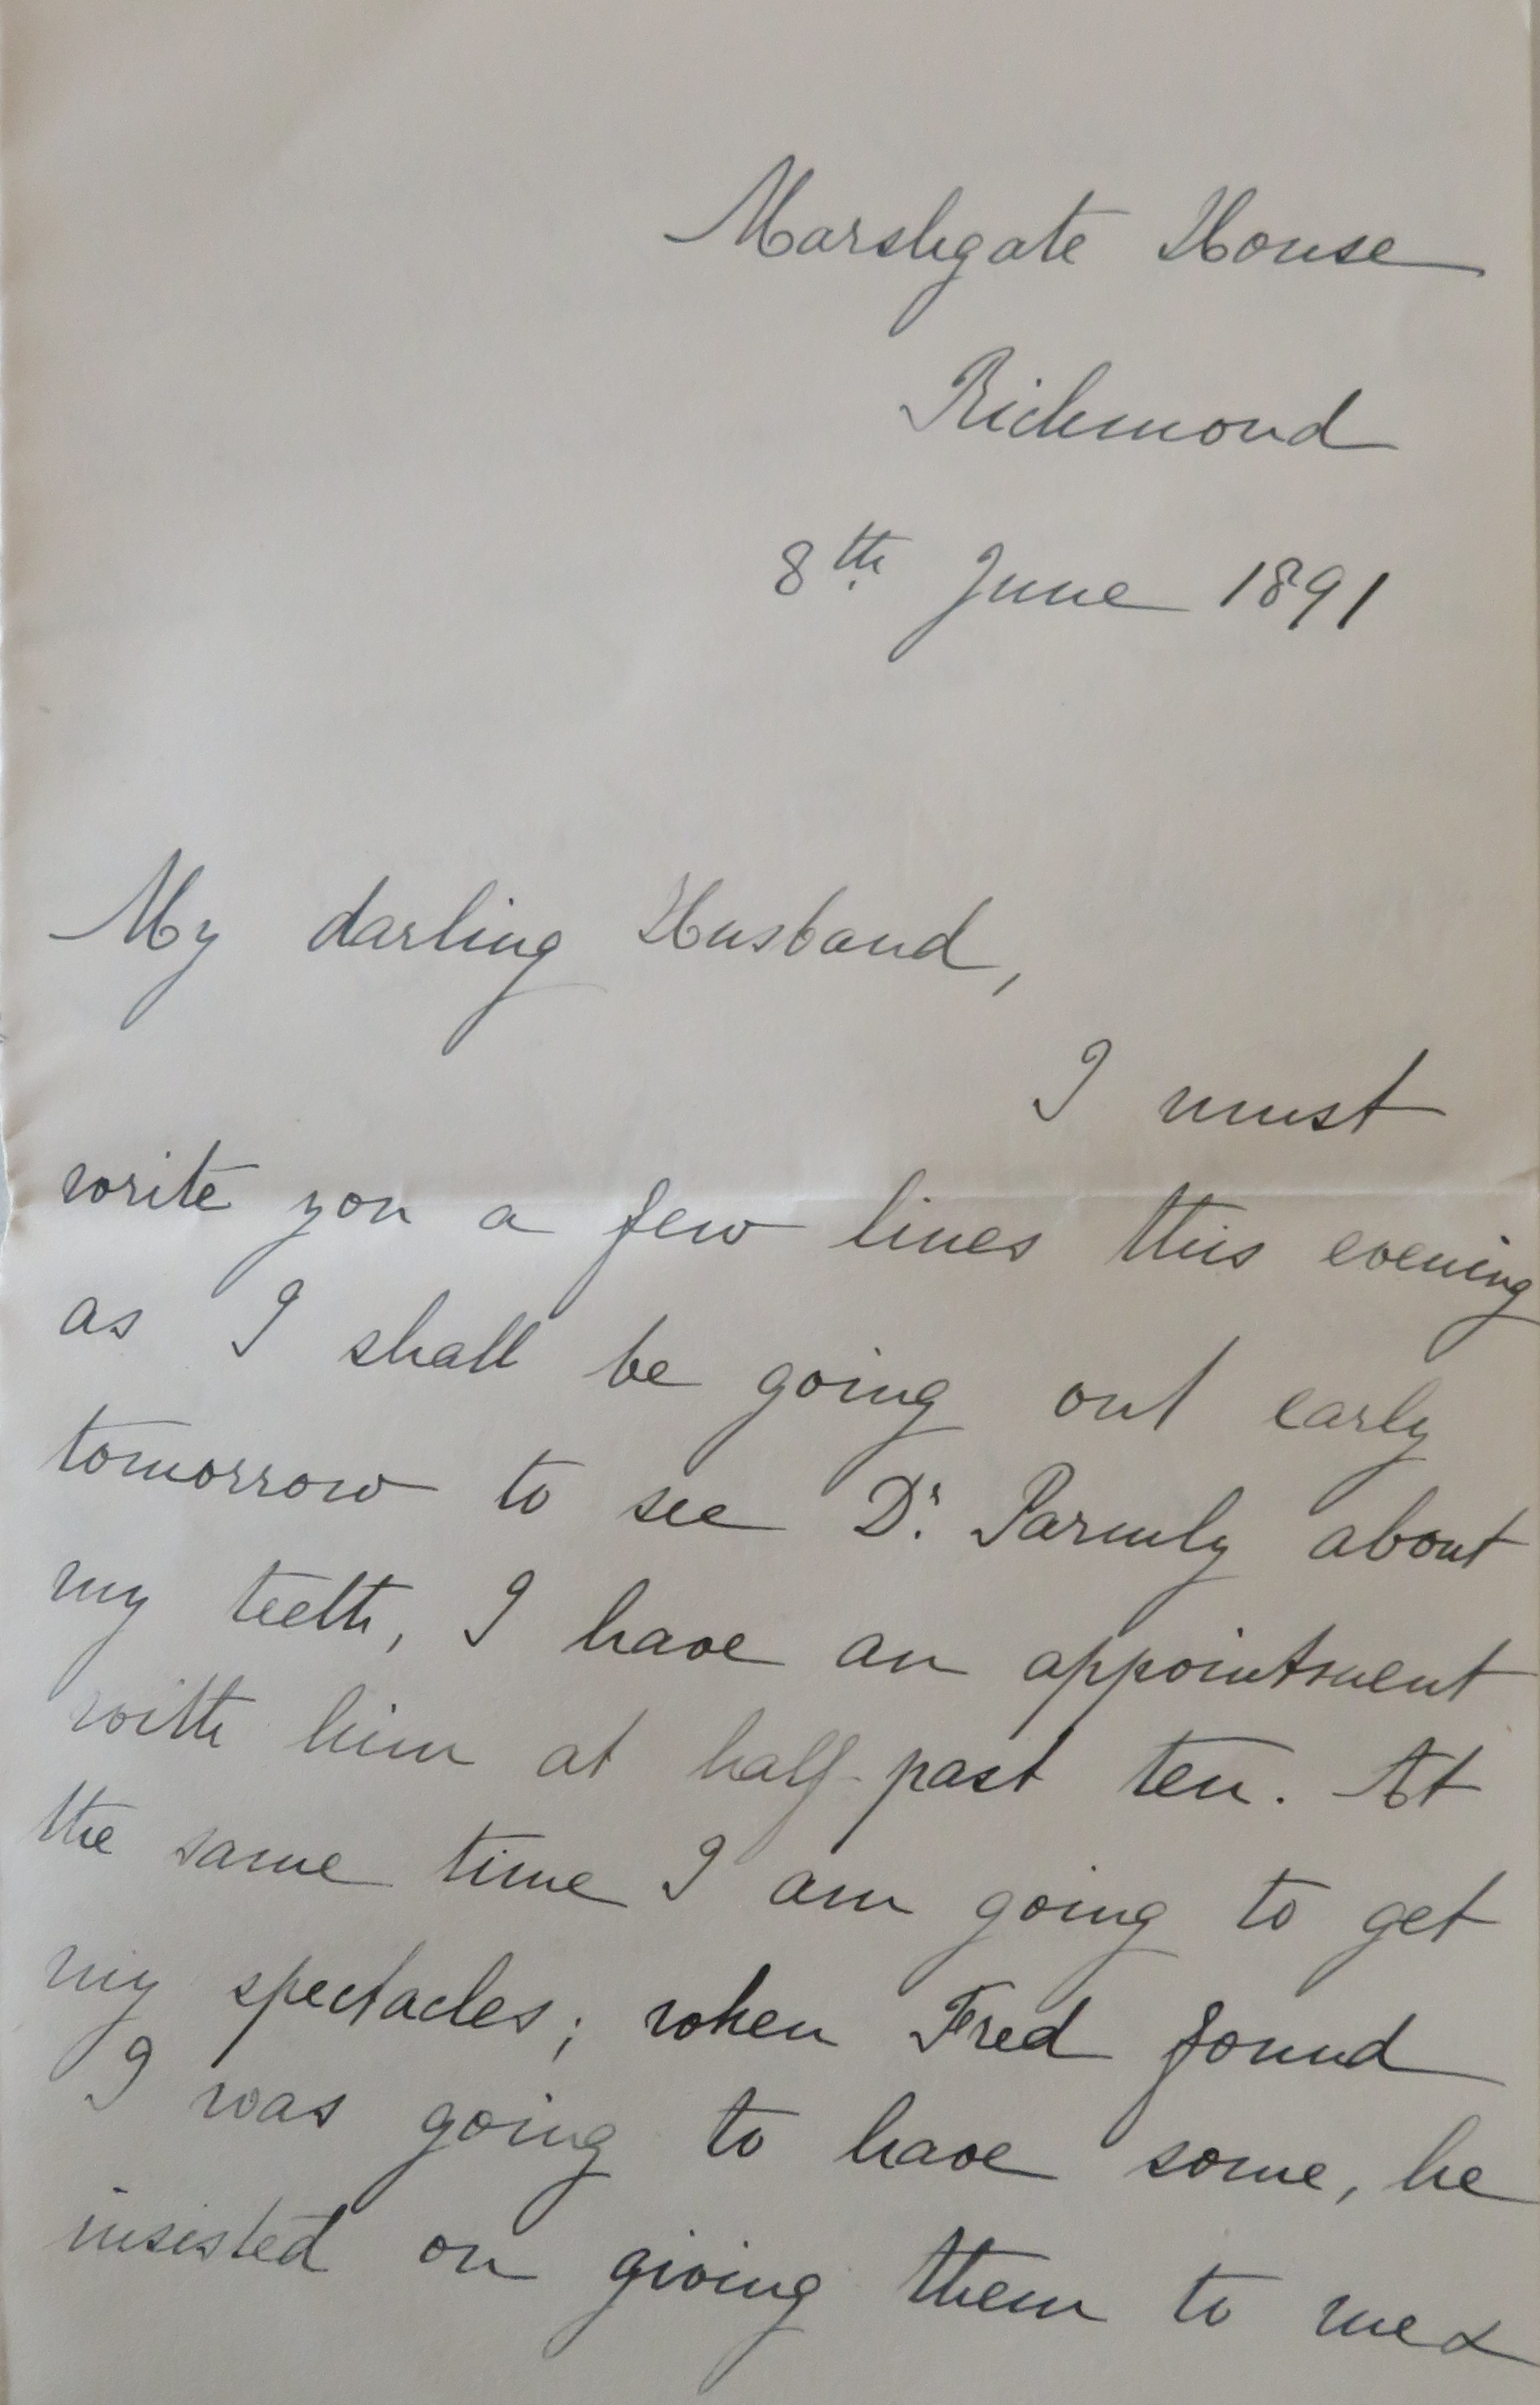 Marshgate House
Richmond
8th June 1891
My darling Husband,
I must
write you a few lines this evening
as I shall be going out early
tomorrow to see Dr. Parmly about
my teeth, I have an appointment
with him at half-past ten. At
the same time I am going to get
my spectacles; when Fred found
I was going to have some, he
insisted on giving them to me &